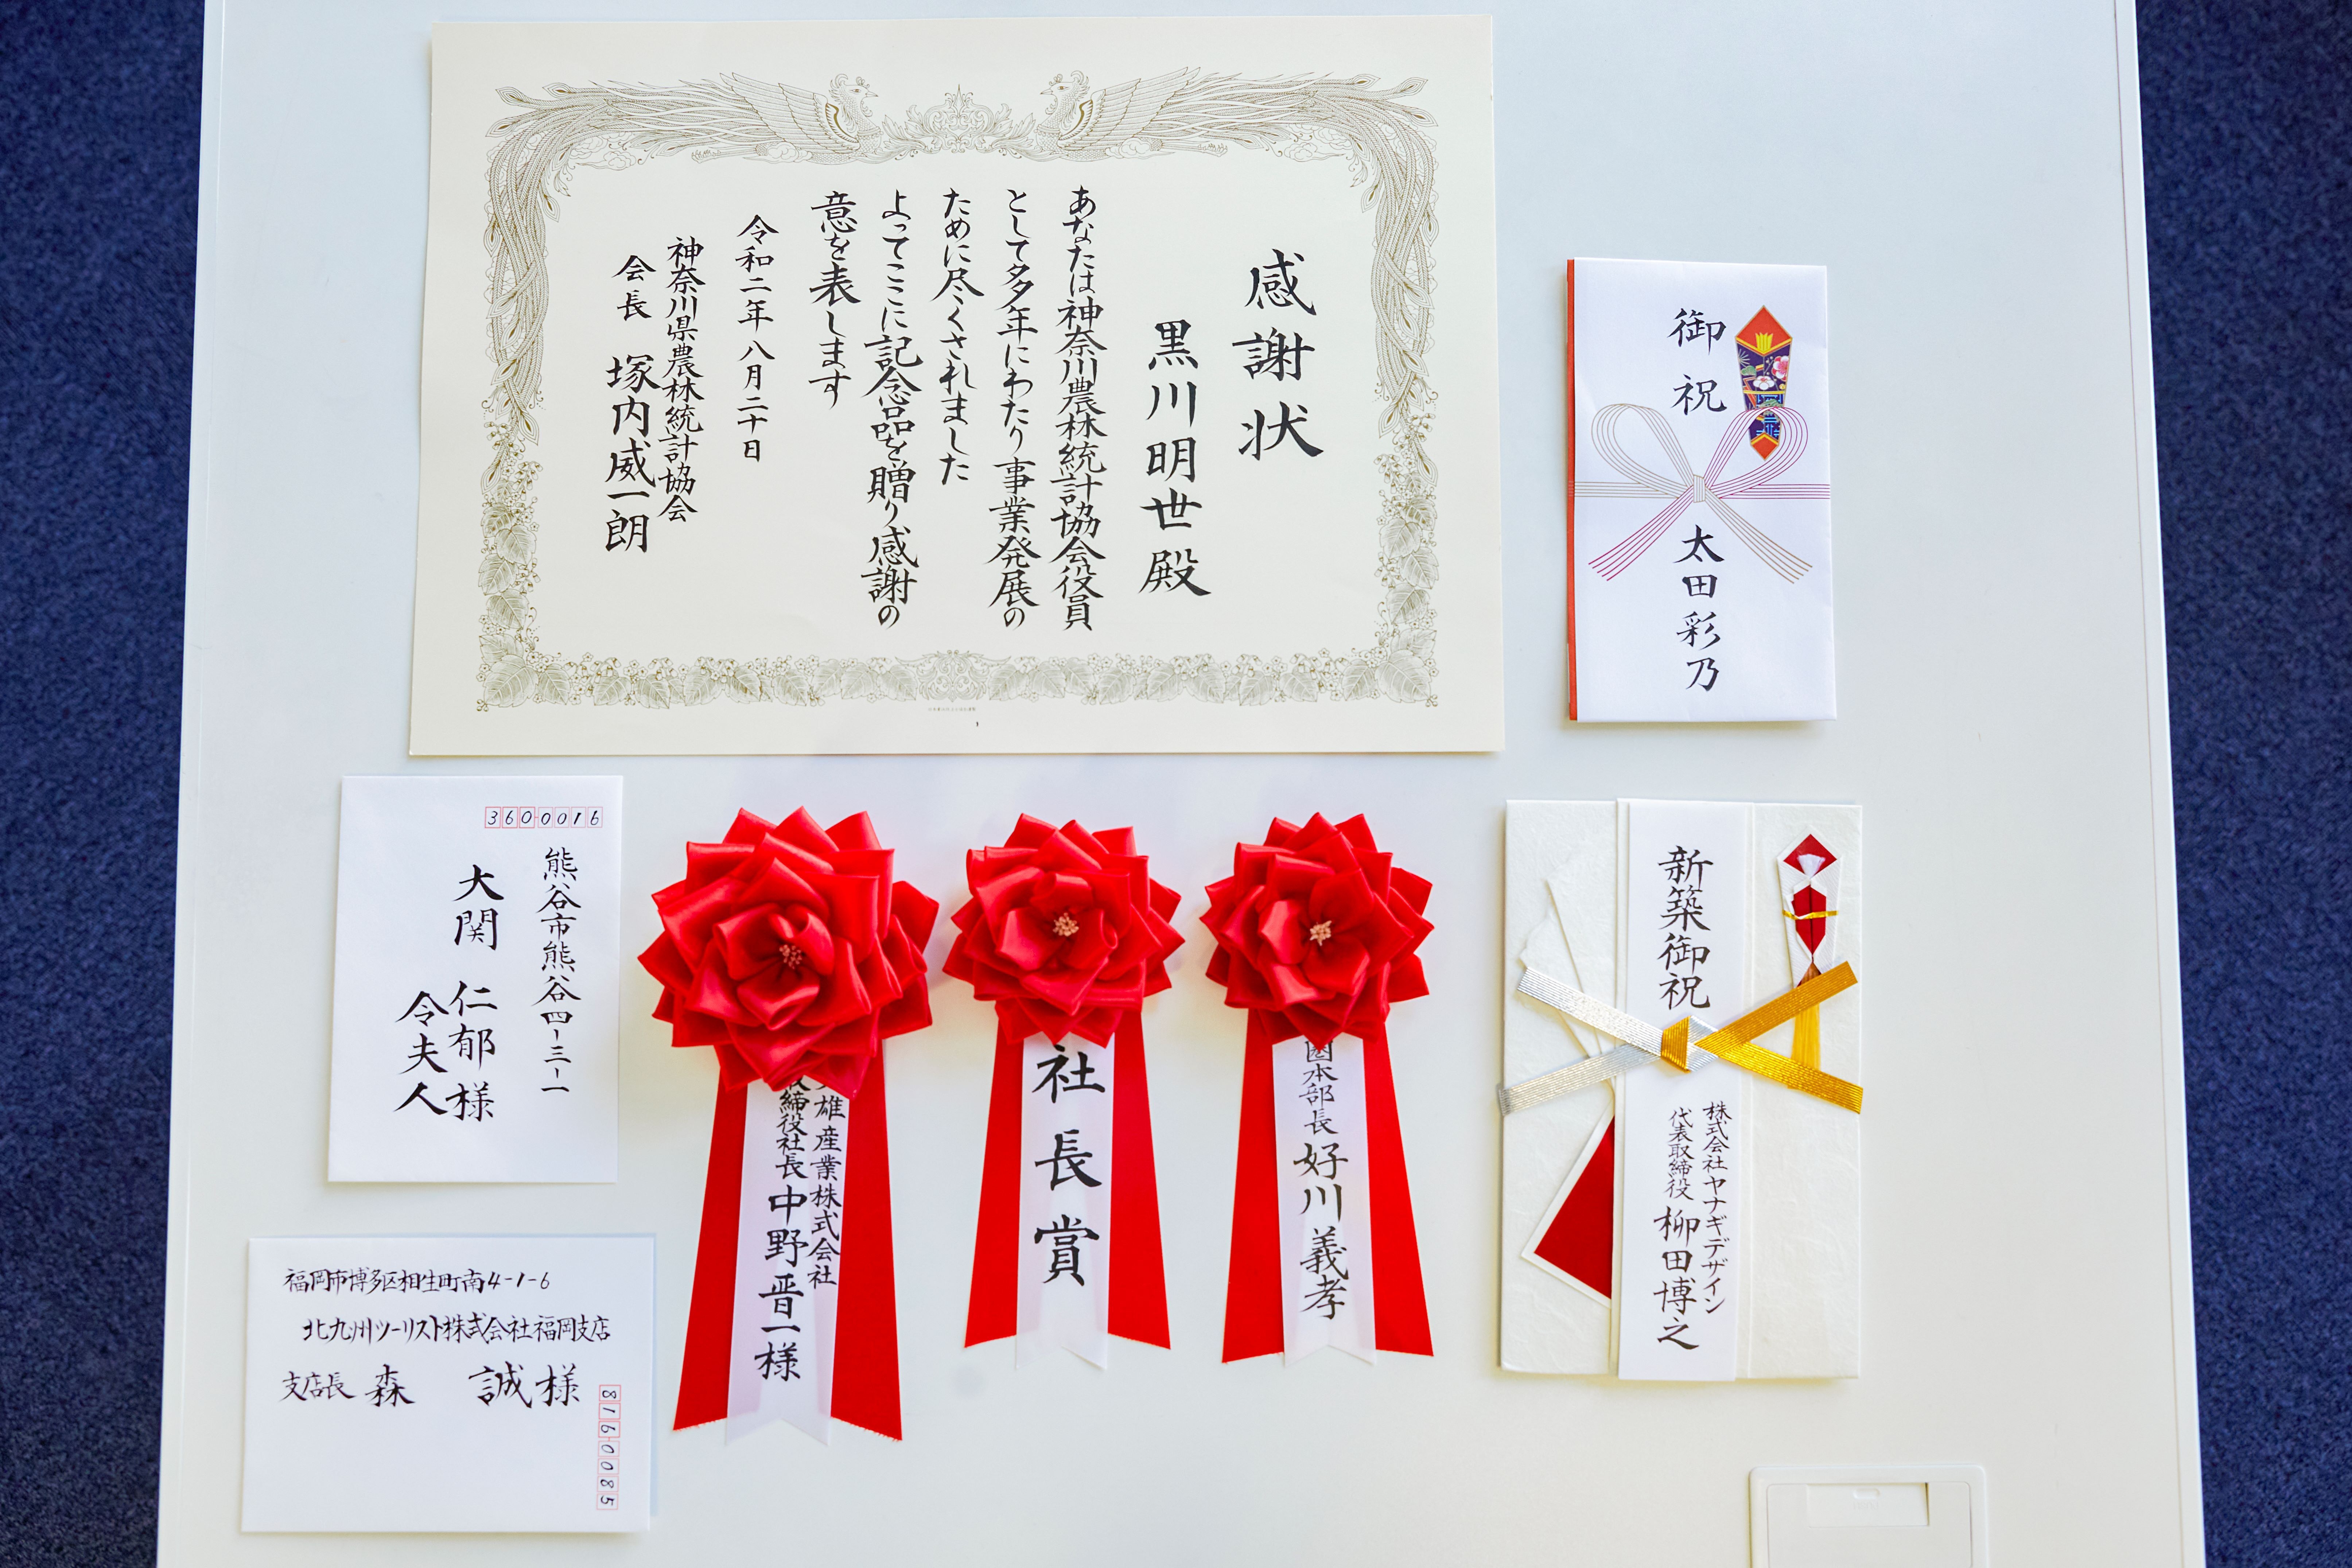 感謝状
黒川明世殿
あなたは神奈川農林統計協会役員
として多年にわたり事業発展の
ために尽くされました
よってここに記念品を贈り感謝の
意を表します
令和二年八月二十日
神奈川県農林統計協会
会長 塚内威一朗
御祝
太田彩乃
3600016
熊谷市熊谷四-三-一
大関 仁郁様
令夫人
福岡市博多区相生町南4-1-6
北九州ツーリスト株式会社福岡支店
支店長 森 誠様
8160085
雄産業株式会社
締役社長 中野晋一様
社長賞
本部長 好川義孝
新築御祝
株式会社ヤナギデザイン
代表取締役 柳田博之